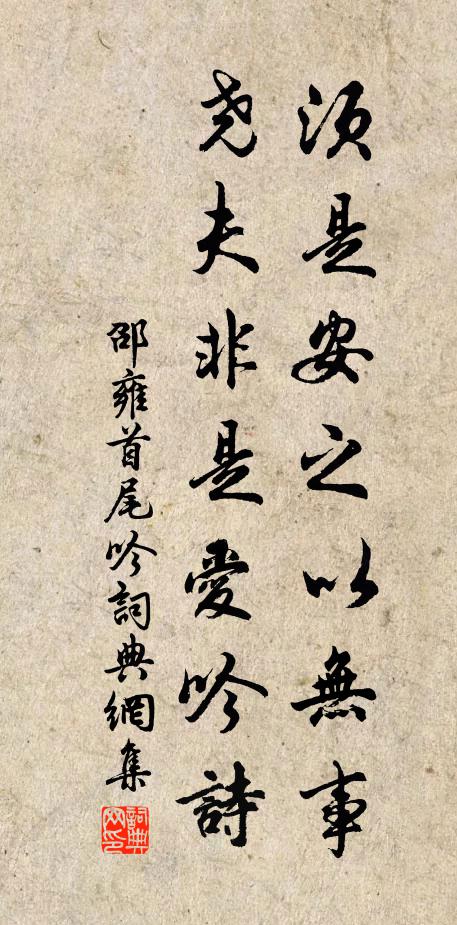 須是安之以無事
堯夫非是愛吟詩
邵雍首尾吟詞典網集
詞典网印